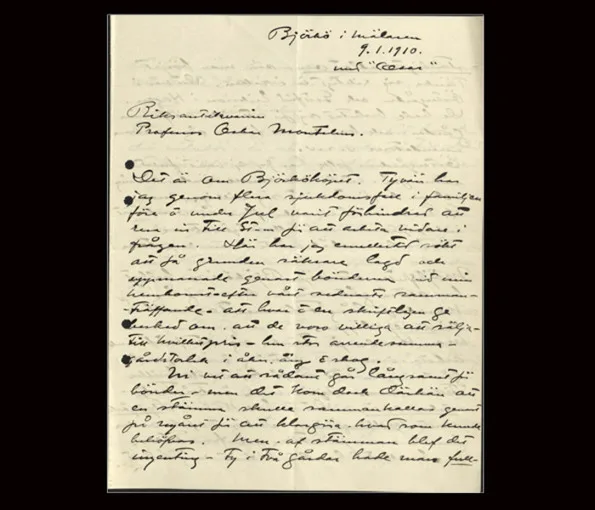 Björkö i Mälaren
9.1.1910.
Riksantikvarien
Professor Oskar Montelius.
Det är om Björkököpet. Tyvärr har
jag genom flera sjukdomsfall i familjen
före o under Jul varit förhindrad att
resa in till Stm för att arbeta vidare i
frågan. Här har jag emellertid sökt
att få grunden säkrare lagd och
uppmanade genast bönderna vid min
hemkomst efter vårt senaste samman-
träffande att hvar o en skriftligen ge
besked om att de voro villiga att sälja
till hvilket pris - hur stor
i åker, äng o skog.
Ni vet att sådant går långsamt för
bönder - men det kom dock därhän att
en stämma skulle sammankallas genast
på nyåret för att klargöra hvad som kunde
behöfvas. Men af stämman blef det
ingenting - Ty i två gårdar hade man full-